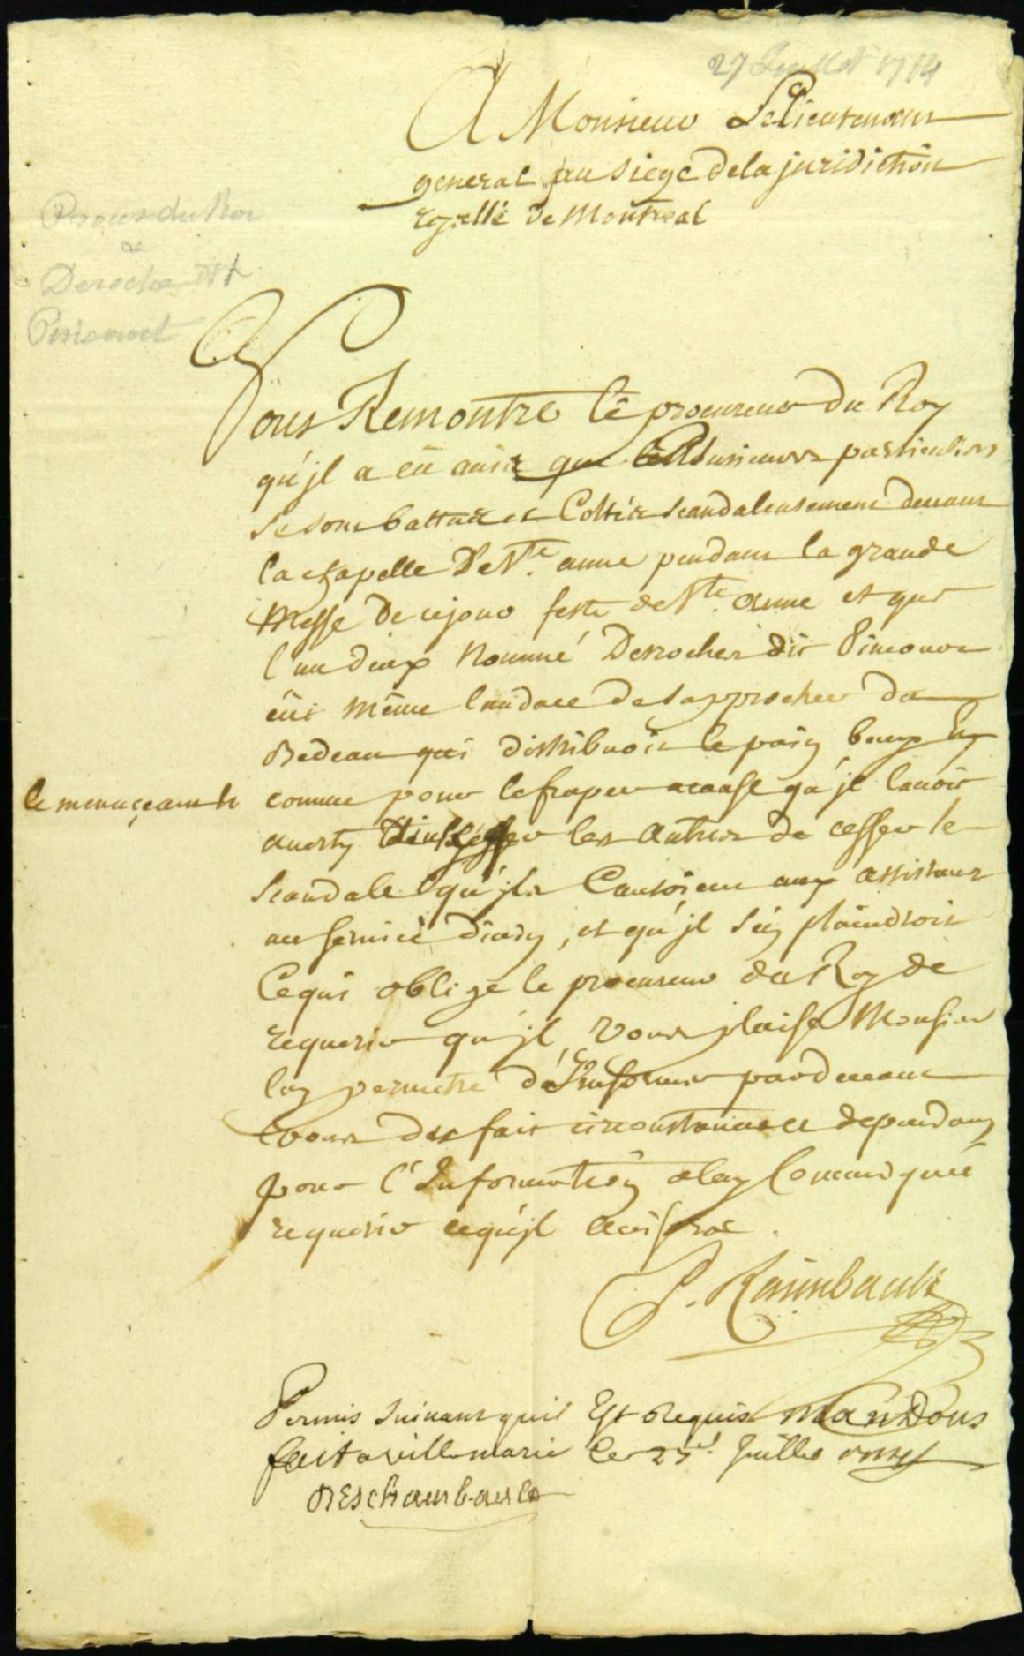 27 Juillet 1714
A Monsieur Le Lieutenant
general au siege dela juridiction
Royalle de Montreal
Procur du Roi
a
Deroche dit
Pincourt
Vous Remontre le procureur du Roy
qu'jl a eü auis que Plusieurs particuliers
se sont battus et Coltés scandaleusement deuant
la chapelle De Ste. anne pendant la grande
Messe De ce jour feste de Ste. anne et que
l'un deux Nommé Desrocher dit Pincour
eüt même laudace de sapprocher du
Bedeau qui distribuoit le pain beny Et
le menaçeant
comme pour le fraper a cause qu'jl lauoit
auerty les Autres de cesser le
scandale qu'jls Causoient aux assistans
au seruice diuin, et qu'jl s'en plaindroit
Ce qui oblige le procureur du Roy de
requerir qu'jl Vous plaise Monsieur
luy permettre d'Informer pardeuant
vous des fait circonstance et dependans
pour l'Information a luy Communiquée
requerir ce qu'jl auisera.
P. Raimbault
Permis suiuant quil Est Requis Mandons
fait a villemarie le Juillet
Deschambault